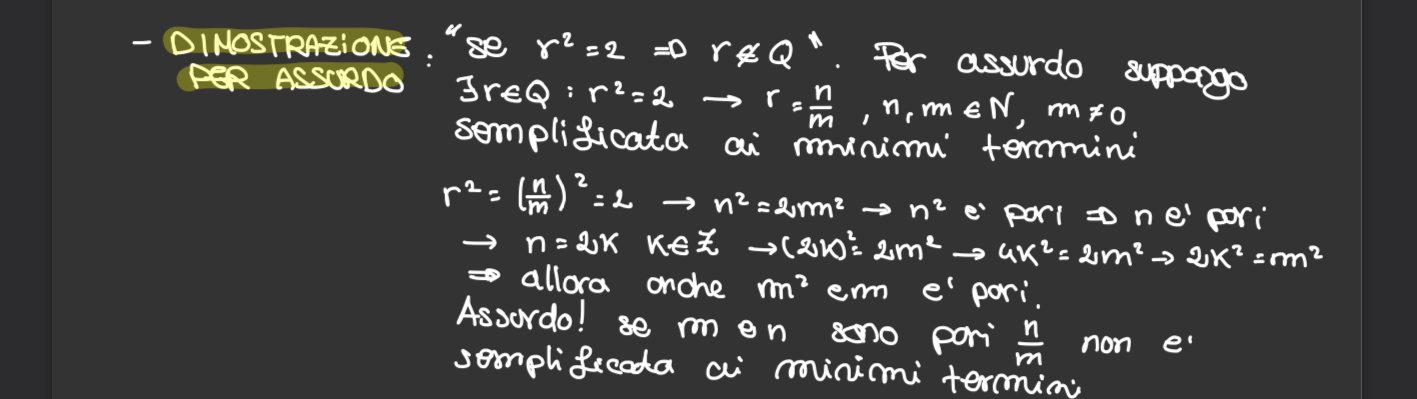 - DIMOSTRAZIONE : "se r² = 2 ⇒ r ∉ Q". Per assurdo suppongo
PER ASSURDO ∃r∈Q : r² = 2 → r = n/m , n, m ∈ N, m ≠ 0
semplificata ai minimi termini
r² = (n/m)² = 2 → n² = 2m² → n² e' pari ⇒ n e' pari
→ n = 2K K∈Z → (2K)² = 2m² → 4K² = 2m² → 2K² = m²
⇒ allora anche m² e m e' pari.
Assurdo! se m e n sono pari n/m non e'
semplificata ai minimi termini